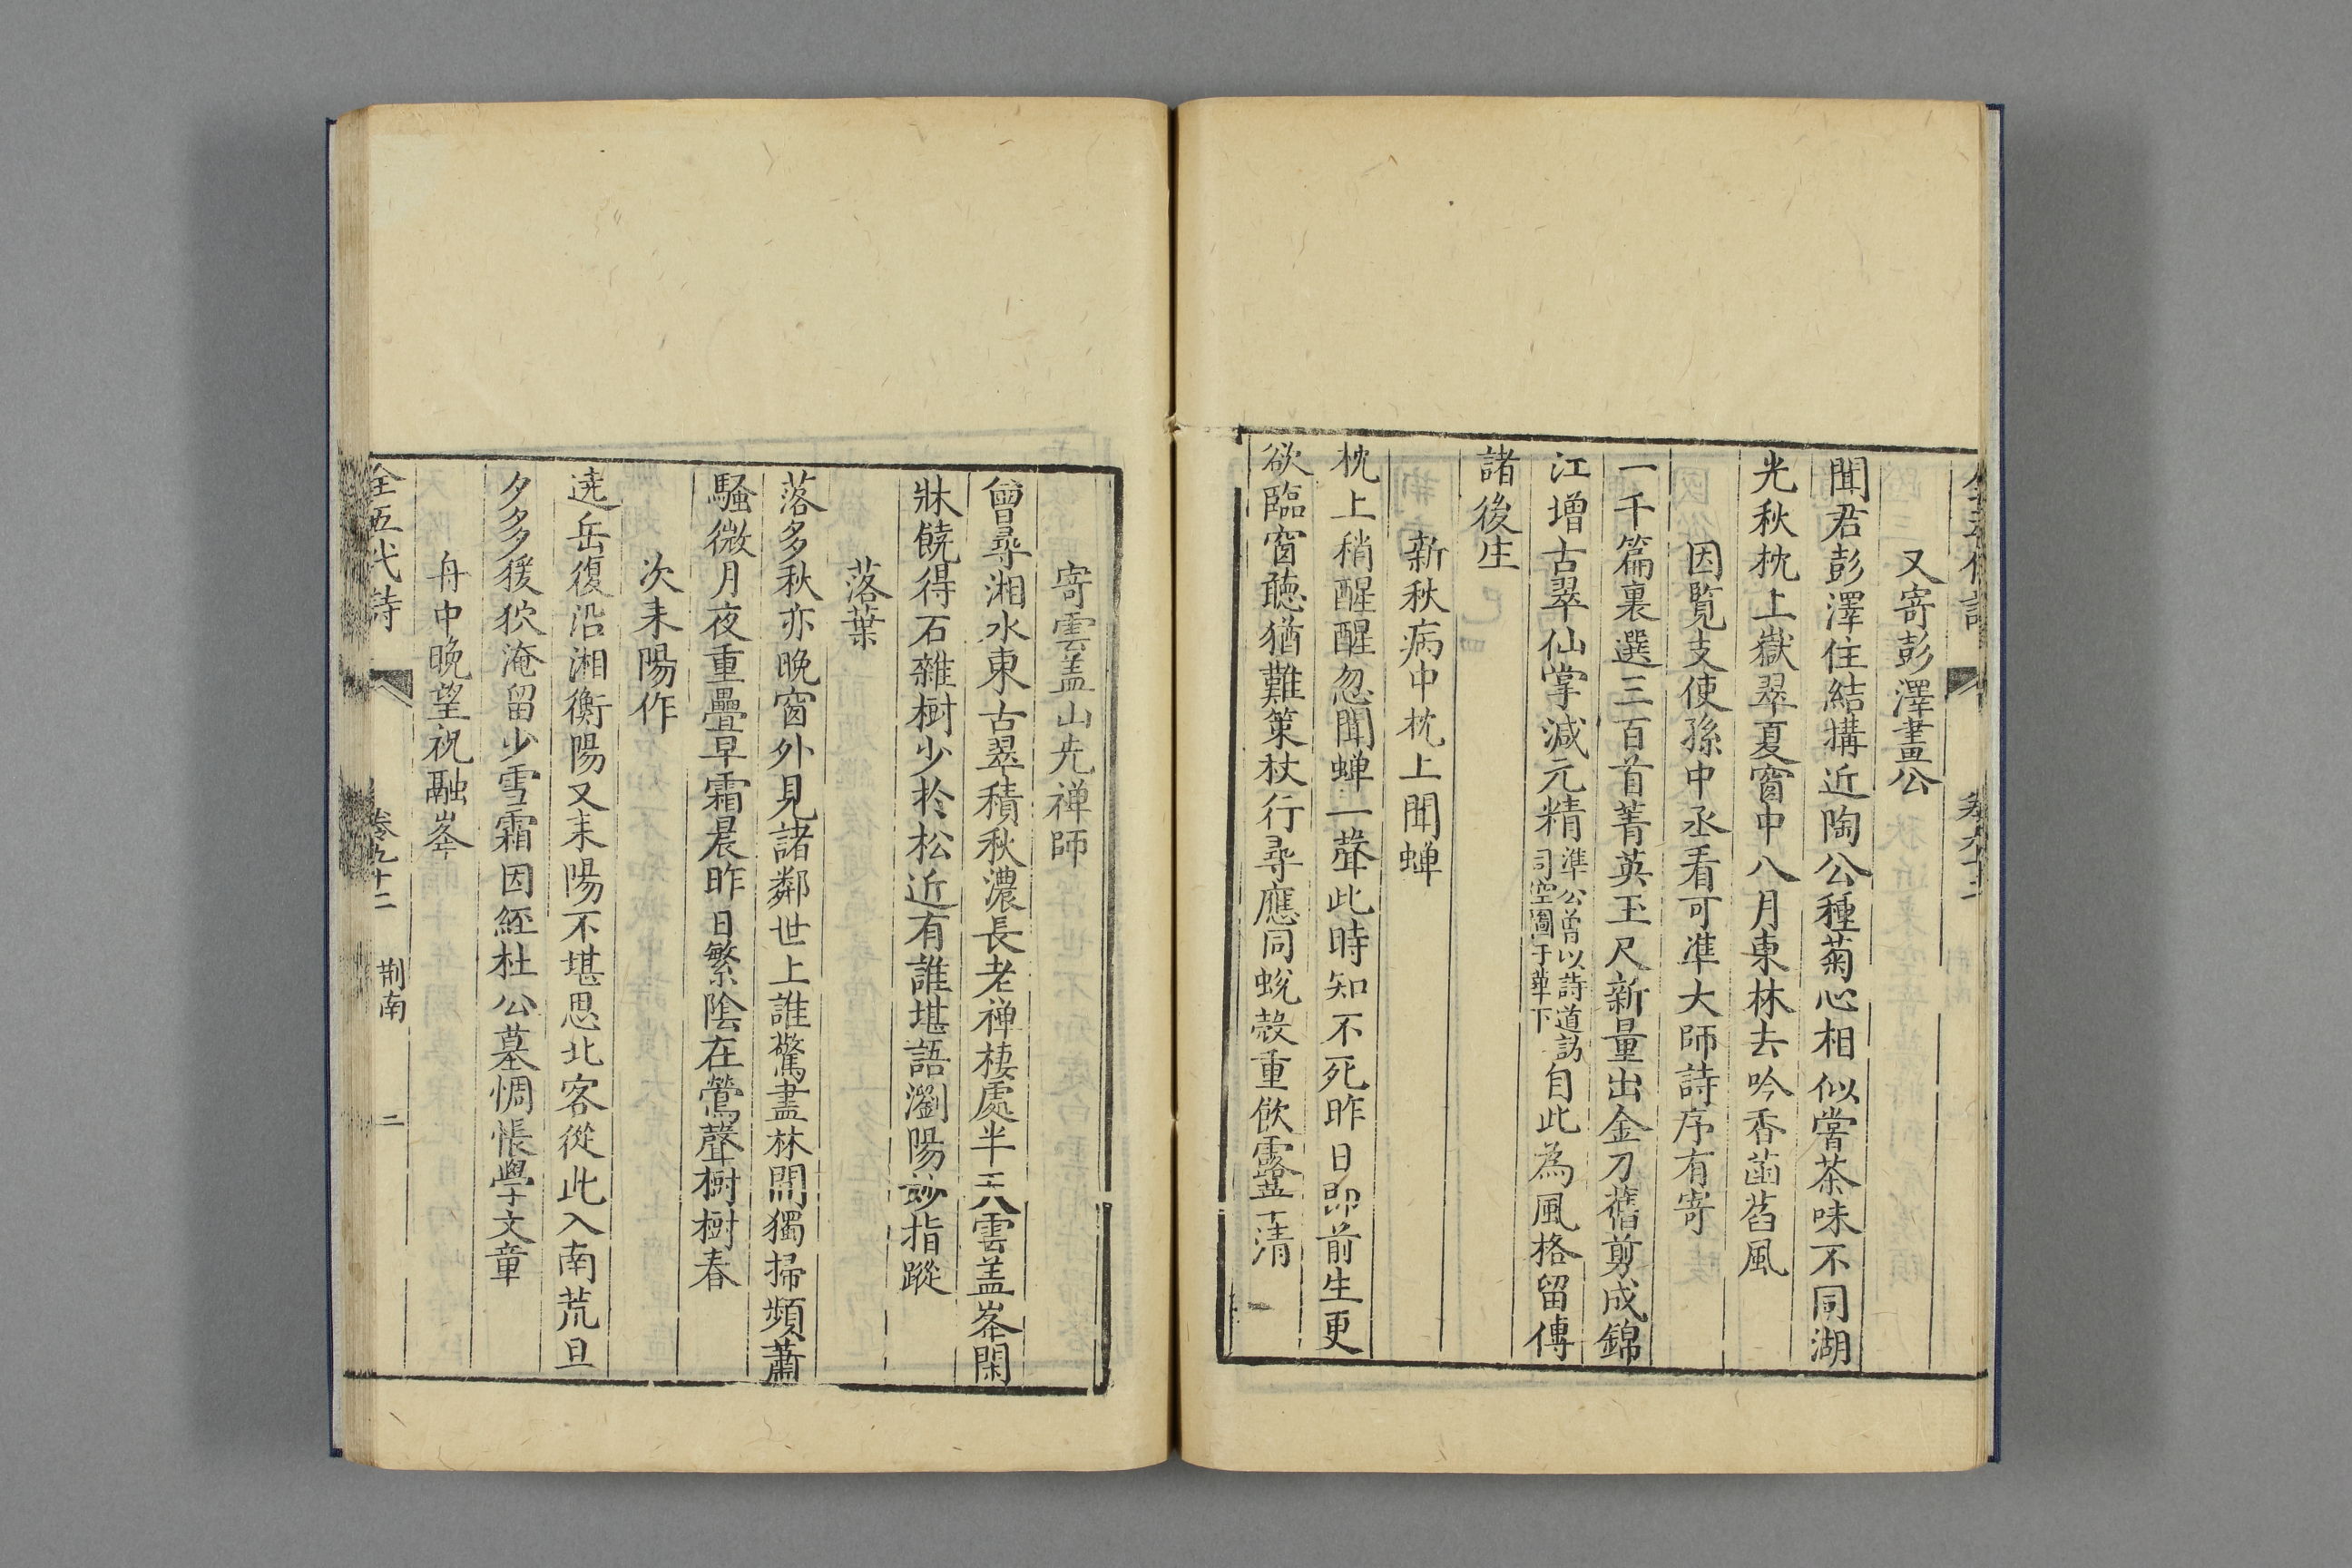 又寄彭澤晝公
聞君彭澤住結搆近陶公種菊心相似嘗茶味不同湖
光秋枕上嶽翠夏窗中八月東林去吟香菡萏風
因覽支使孫中丞看可準大師詩序有寄
一千篇裏選三百首菁英玉尺新量出金刀舊剪成錦
江增古翠仙掌減元精準公曾以詩道訪司空圖于華下自此為風格留傳
諸後生
新秋病中枕上聞蟬
枕上稍醒醒忽聞蟬一聲此時知不死昨日即前生更
欲臨窗聽猶難策杖行尋應同蛻殼重飲露華清
寄雲盖山先禅師
曾尋湘水東古翠積秋濃長老禅棲處半天雲盖峯閑
牀饒得石雜樹少於松近有誰堪語瀏陽妙指蹤
落葉
落多秋亦晚窗外見諸鄰世上誰驚盡林間獨掃頻蕭
騷微月夜重疊早霜晨昨日繁陰在鶯聲樹樹春
次耒陽作
遶岳復沿湘衡陽又耒陽不堪思北客從此入南荒旦
夕多猨狖淹留少雪霜因經杜公墓惆悵學文章
舟中晚望祝融峯
全五代詩 卷九十二 荆南 二